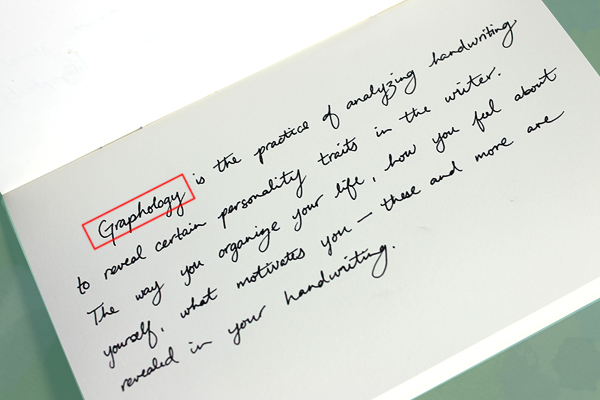 Graphology is the practice of analyzing handwriting
to reveal certain personality traits in the writer.
The way you organize your life, how you feel about
yourself, what motivates you — these and more are
revealed in your handwriting.